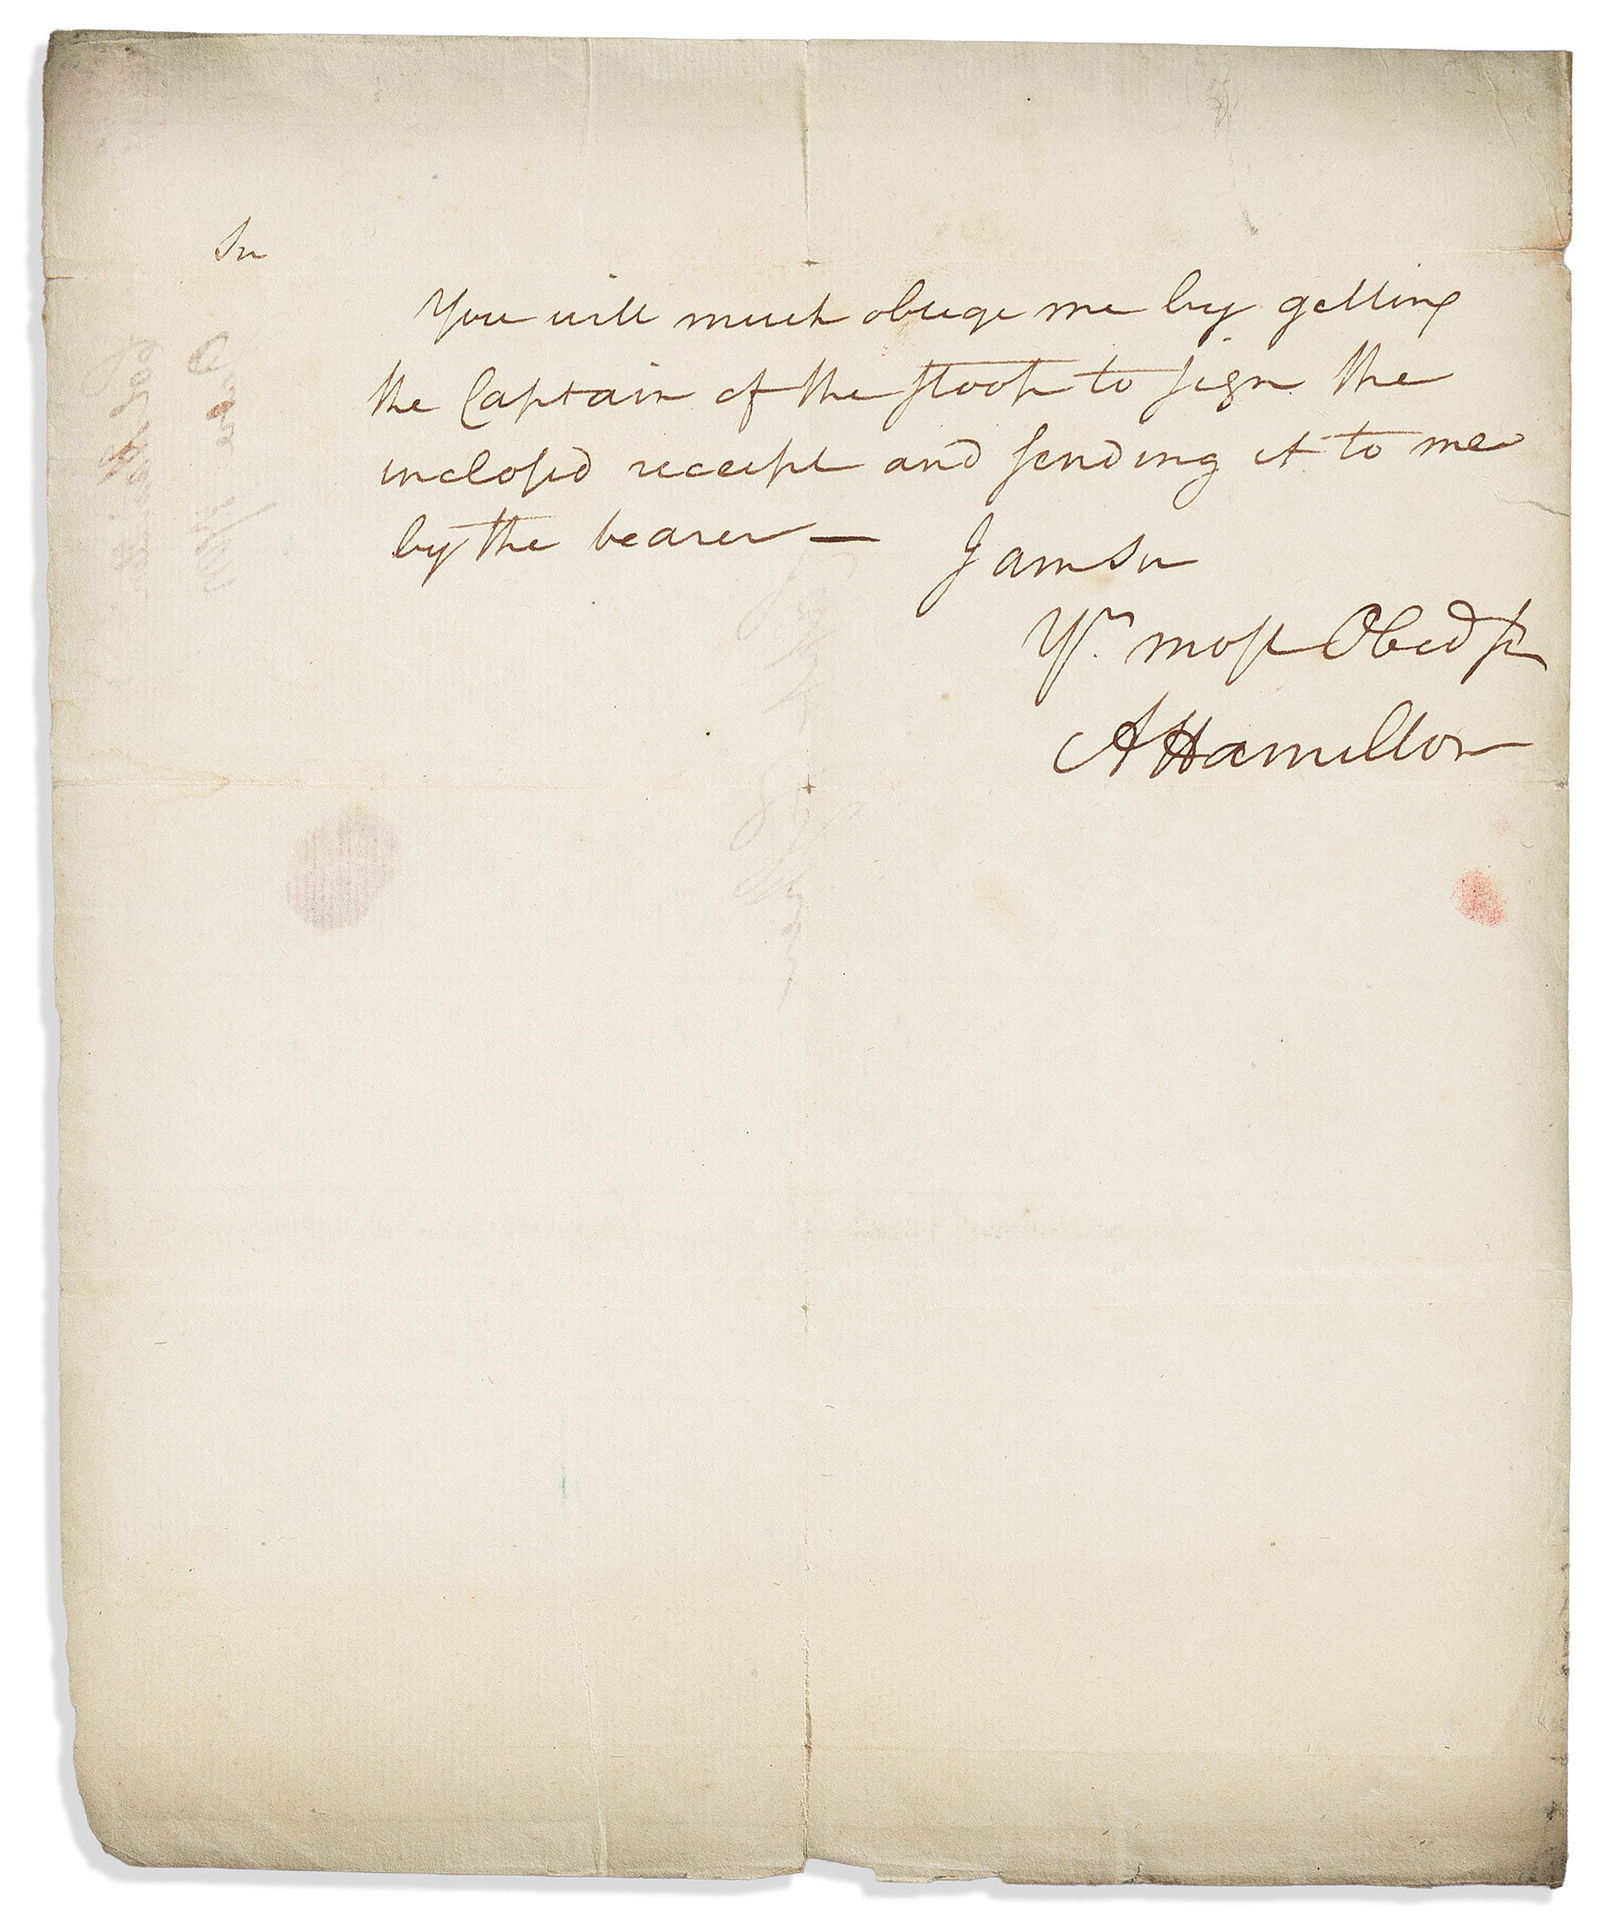 Sir
You will much oblige me by getting
the Captain of the sloop to sign the
inclosed receipt and sending it to me
by the bearer —
I am Sir
Yr. most Obed st
AHamilton